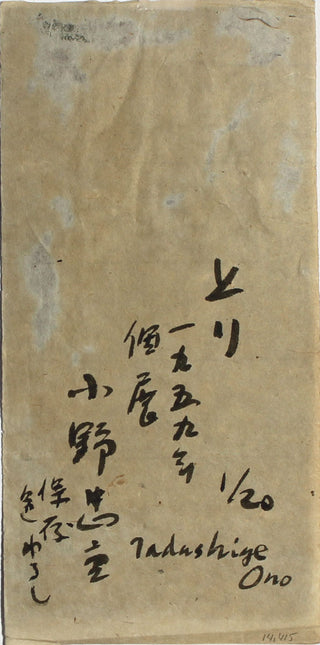 とり
一九五九年
個展
小野忠重
保存
1/20
Tadashige
Ono
14,415